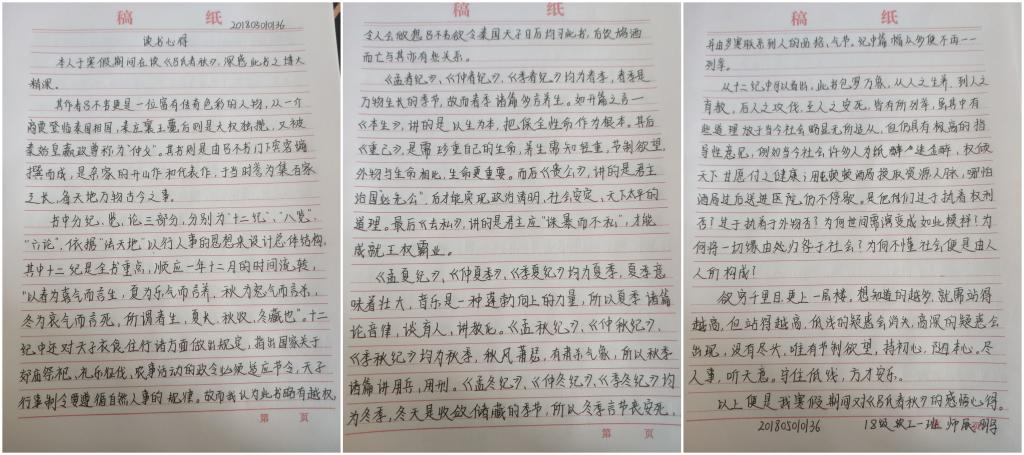 稿 纸
201805010136
读书心得
本人于寒假期间在读《吕氏春秋》,深感此书之博大
精深。
其作者吕不韦更是一位富有传奇色彩的人物,从一介
商贾登临秦国相国,秦庄襄王薨后则是大权独揽,又被
秦始皇嬴政尊称为“仲父”。其书则是由吕不韦门下宾客编
撰而成,是杂家的开山作和代表作,于当时誉为集百家
之长,备天地万物古今之事。
书中分纪、览、论三部分,分别为“十二纪”、“八览”、
“六论”,依据“法天地”以行人事的思想来设计总体结构,
其中十二纪是全书重点,顺应一年十二月的时间流转,
“以春为喜气而言生,夏为乐气而言养,秋为怒气而言杀,
冬为哀气而言死,所谓春生,夏长,秋收,冬藏也”。十二
纪中还对天子衣食住行诸方面做出规定,指出国家关于
郊庙祭祀、礼乐征伐、农事活动的政令必须是应节令,天子
行事制令要遵循自然人事的规律。故而我认为此书略有越权,
第 页
令人会做想吕不韦欲令秦国天子日后均习此书,后饮鸩酒
而亡与其亦有些关系。
《孟春纪》、《仲春纪》、《季春纪》均为春季,春季是
万物生长的季节,故而春季诸篇多言养生。如开篇之言一
《本生》,讲的是以生为本,把保全性命作为根本。其后
《重己》,是需珍重自己的生命,养生需知轻重,节制欲望,
外物与生命相比,生命更重要。而后《贵公》,讲的是君主
治国“必先公”,后才能实现政治清明,社会安定,天下太平的
道理。最后《去私》,讲的是君主应“诛暴而不私”,才能
成就王权霸业。
《孟夏纪》、《仲夏季》、《季夏纪》均为夏季,夏季意
味着壮大,音乐是一种蓬勃向上的力量,所以夏季诸篇
论音律,谈育人,讲教化。《孟秋纪》、《仲秋纪》、
《季秋纪》均为秋季,秋风萧瑟,有肃杀气象,所以秋季
诸篇讲用兵,用刑。《孟冬纪》、《仲冬纪》、《季冬纪》均
为冬季,冬天是收敛储藏的季节,所以冬季言节丧安死,
稿 纸
第 页
稿 纸
并由岁寒联系到人的品格,气节。纪中篇幅众多便不再一一
列举。
从十二纪中可以看出,此书包罗万象,从人之生养,到人之
育教,后人之攻伐,至人之安死,皆有所列举,虽其中有
些道理放于当今社会略显无所适从,但仍具有极高的指
导性意见,例如当今社会许多人为纸醉金迷,权倾
天下甘愿付之健康;用顿顿酒局换取资源人脉,哪怕
酒局过后送进医院,仍不停歇。是他们过于执着权利
否?过于执着于外物否?为何世间需演变成如此模样?为
何将一切缘由处归咎于社会?为何不懂社会便是由人
人所构成?
欲穷千里目,更上一层楼。想知道的越多,就需站得
越高,但站得越高,低浅的疑惑会消失,高深的疑惑会
出现,没有尽头,唯有节制欲望,持初心,随本心。尽
人事,听天意。守住底线,方才安乐。
以上便是我寒假期间对《吕氏春秋》的感悟心得。
201805010136 18级 一班